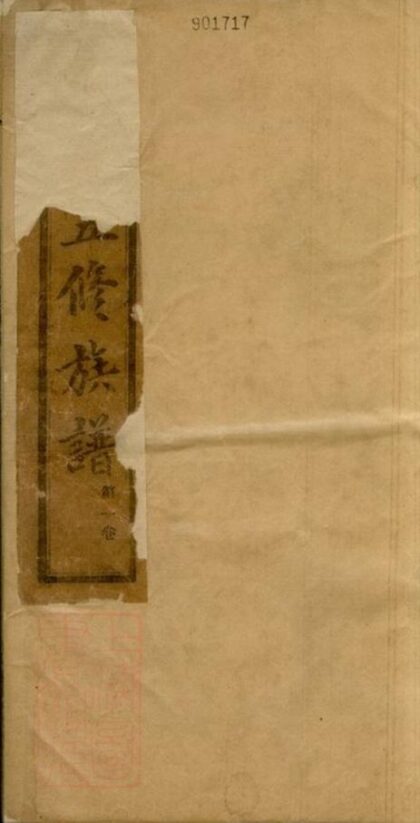 901717
五修族譜
第一卷